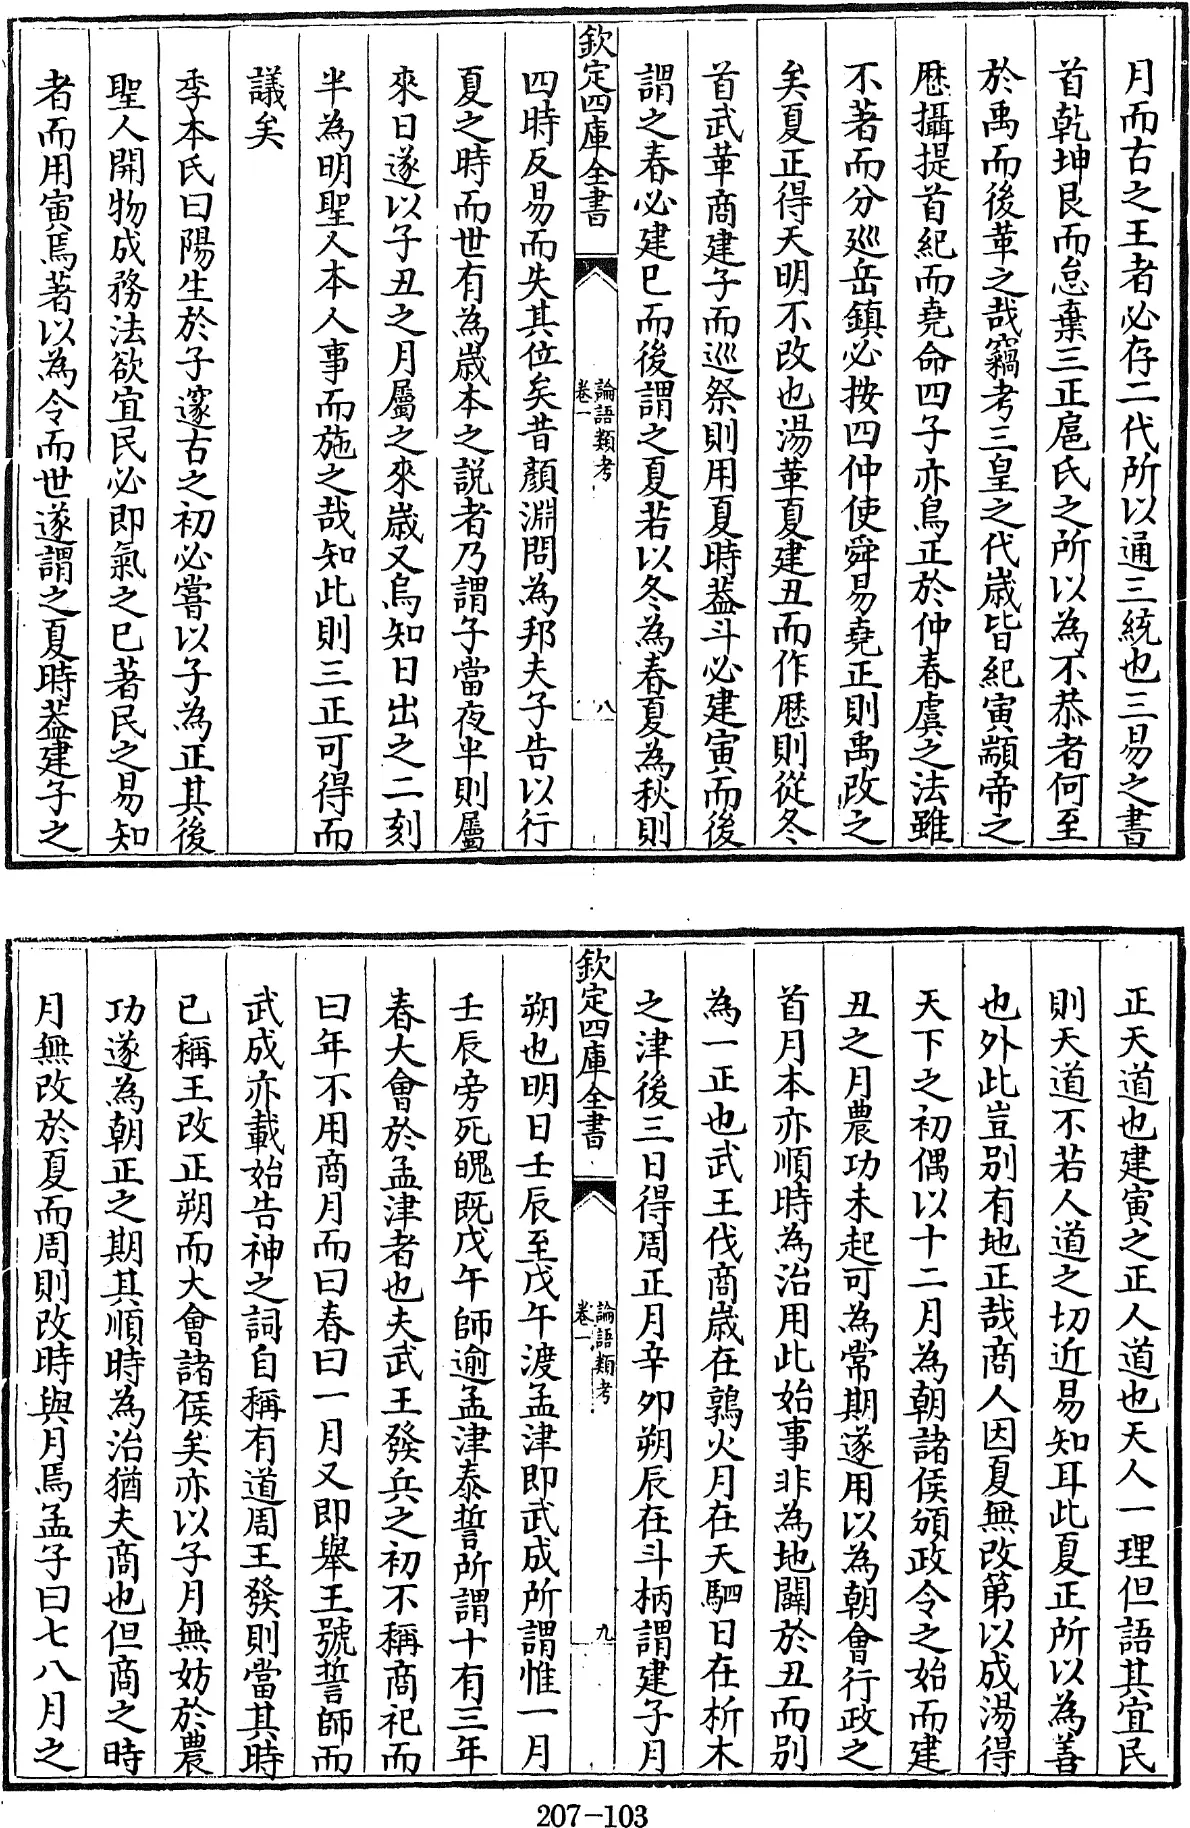 月而古之王者必存二代所以通三統也三易之書
首乾坤艮而怠棄三正扈氏之所以為不恭者何至
於禹而後革之哉竊考三皇之代嵗皆紀寅顓帝之
厯攝提首紀而堯命四子亦鳥正於仲春虞之法雖
不著而分廵岳鎮必按四仲使舜易堯正則禹改之
矣夏正得天明不改也湯革夏建丑而作厯則從冬
首武革商建子而巡祭則用夏時葢斗必建寅而後
謂之春必建巳而後謂之夏若以冬為春夏為秋則
欽定四庫全書
論語類考
卷一
八
四時反易而失其位矣昔顏淵問為邦夫子告以行
夏之時而世有為嵗本之説者乃謂子當夜半則屬
來日遂以子丑之月屬之來嵗又烏知日出之二刻
半為明聖人本人事而施之哉知此則三正可得而
議矣
季本氏曰陽生於子邃古之初必嘗以子為正其後
聖人開物成務法欲宜民必即氣之已著民之易知
者而用寅焉著以為令而世遂謂之夏時葢建子之
正天道也建寅之正人道也天人一理但語其宜民
則天道不若人道之切近易知耳此夏正所以為善
也外此豈别有地正哉商人因夏無改第以成湯得
天下之初偶以十二月為朝諸侯頒政令之始而建
丑之月農功未起可為常期遂用以為朝會行政之
首月本亦順時為治用此始事非為地闢於丑而别
為一正也武王伐商嵗在鶉火月在天駟日在析木
之津後三日得周正月辛夘朔辰在斗柄謂建子月
欽定四庫全書
論語類考
卷一
九
朔也明日壬辰至戊午渡孟津即武成所謂惟一月
壬辰旁死魄既戊午師逾孟津泰誓所謂十有三年
春大會於孟津者也夫武王發兵之初不稱商祀而
曰年不用商月而曰春曰一月又即舉王號誓師而
武成亦載始告神之詞自稱有道周王發則當其時
已稱王改正朔而大會諸侯矣亦以子月無妨於農
功遂為朝正之期其順時為治猶夫商也但商之時
月無改於夏而周則改時與月焉孟子曰七八月之
207-103